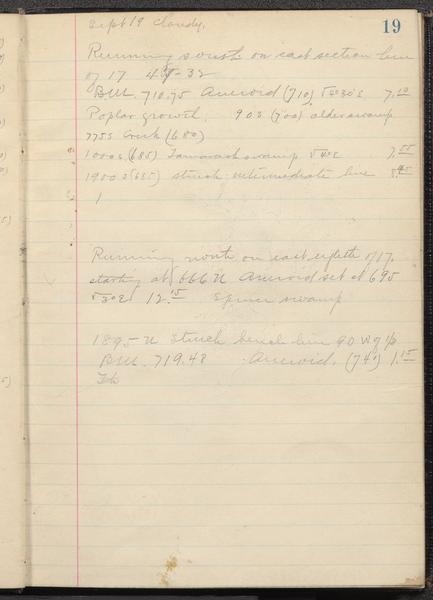 19
Sept 19 Cloudy.
Running south on east section line
of 17 49-32
B.M. 710.75 Aneroid (710) 7.10
Poplar growth. 90 S (700) alder swamp
775 S Creek (680)
1000 S (685) Tamarack swamp 7.55
1900 S (685) struck intermediate line
Running north on east eighth of 17.
starting at 666 N Aneroid set at 695
12.15 Spruce swamp
1895 N Struck bench line 90 W of 1/4
B.M. 719.48 Aneroid. (740) 1.15